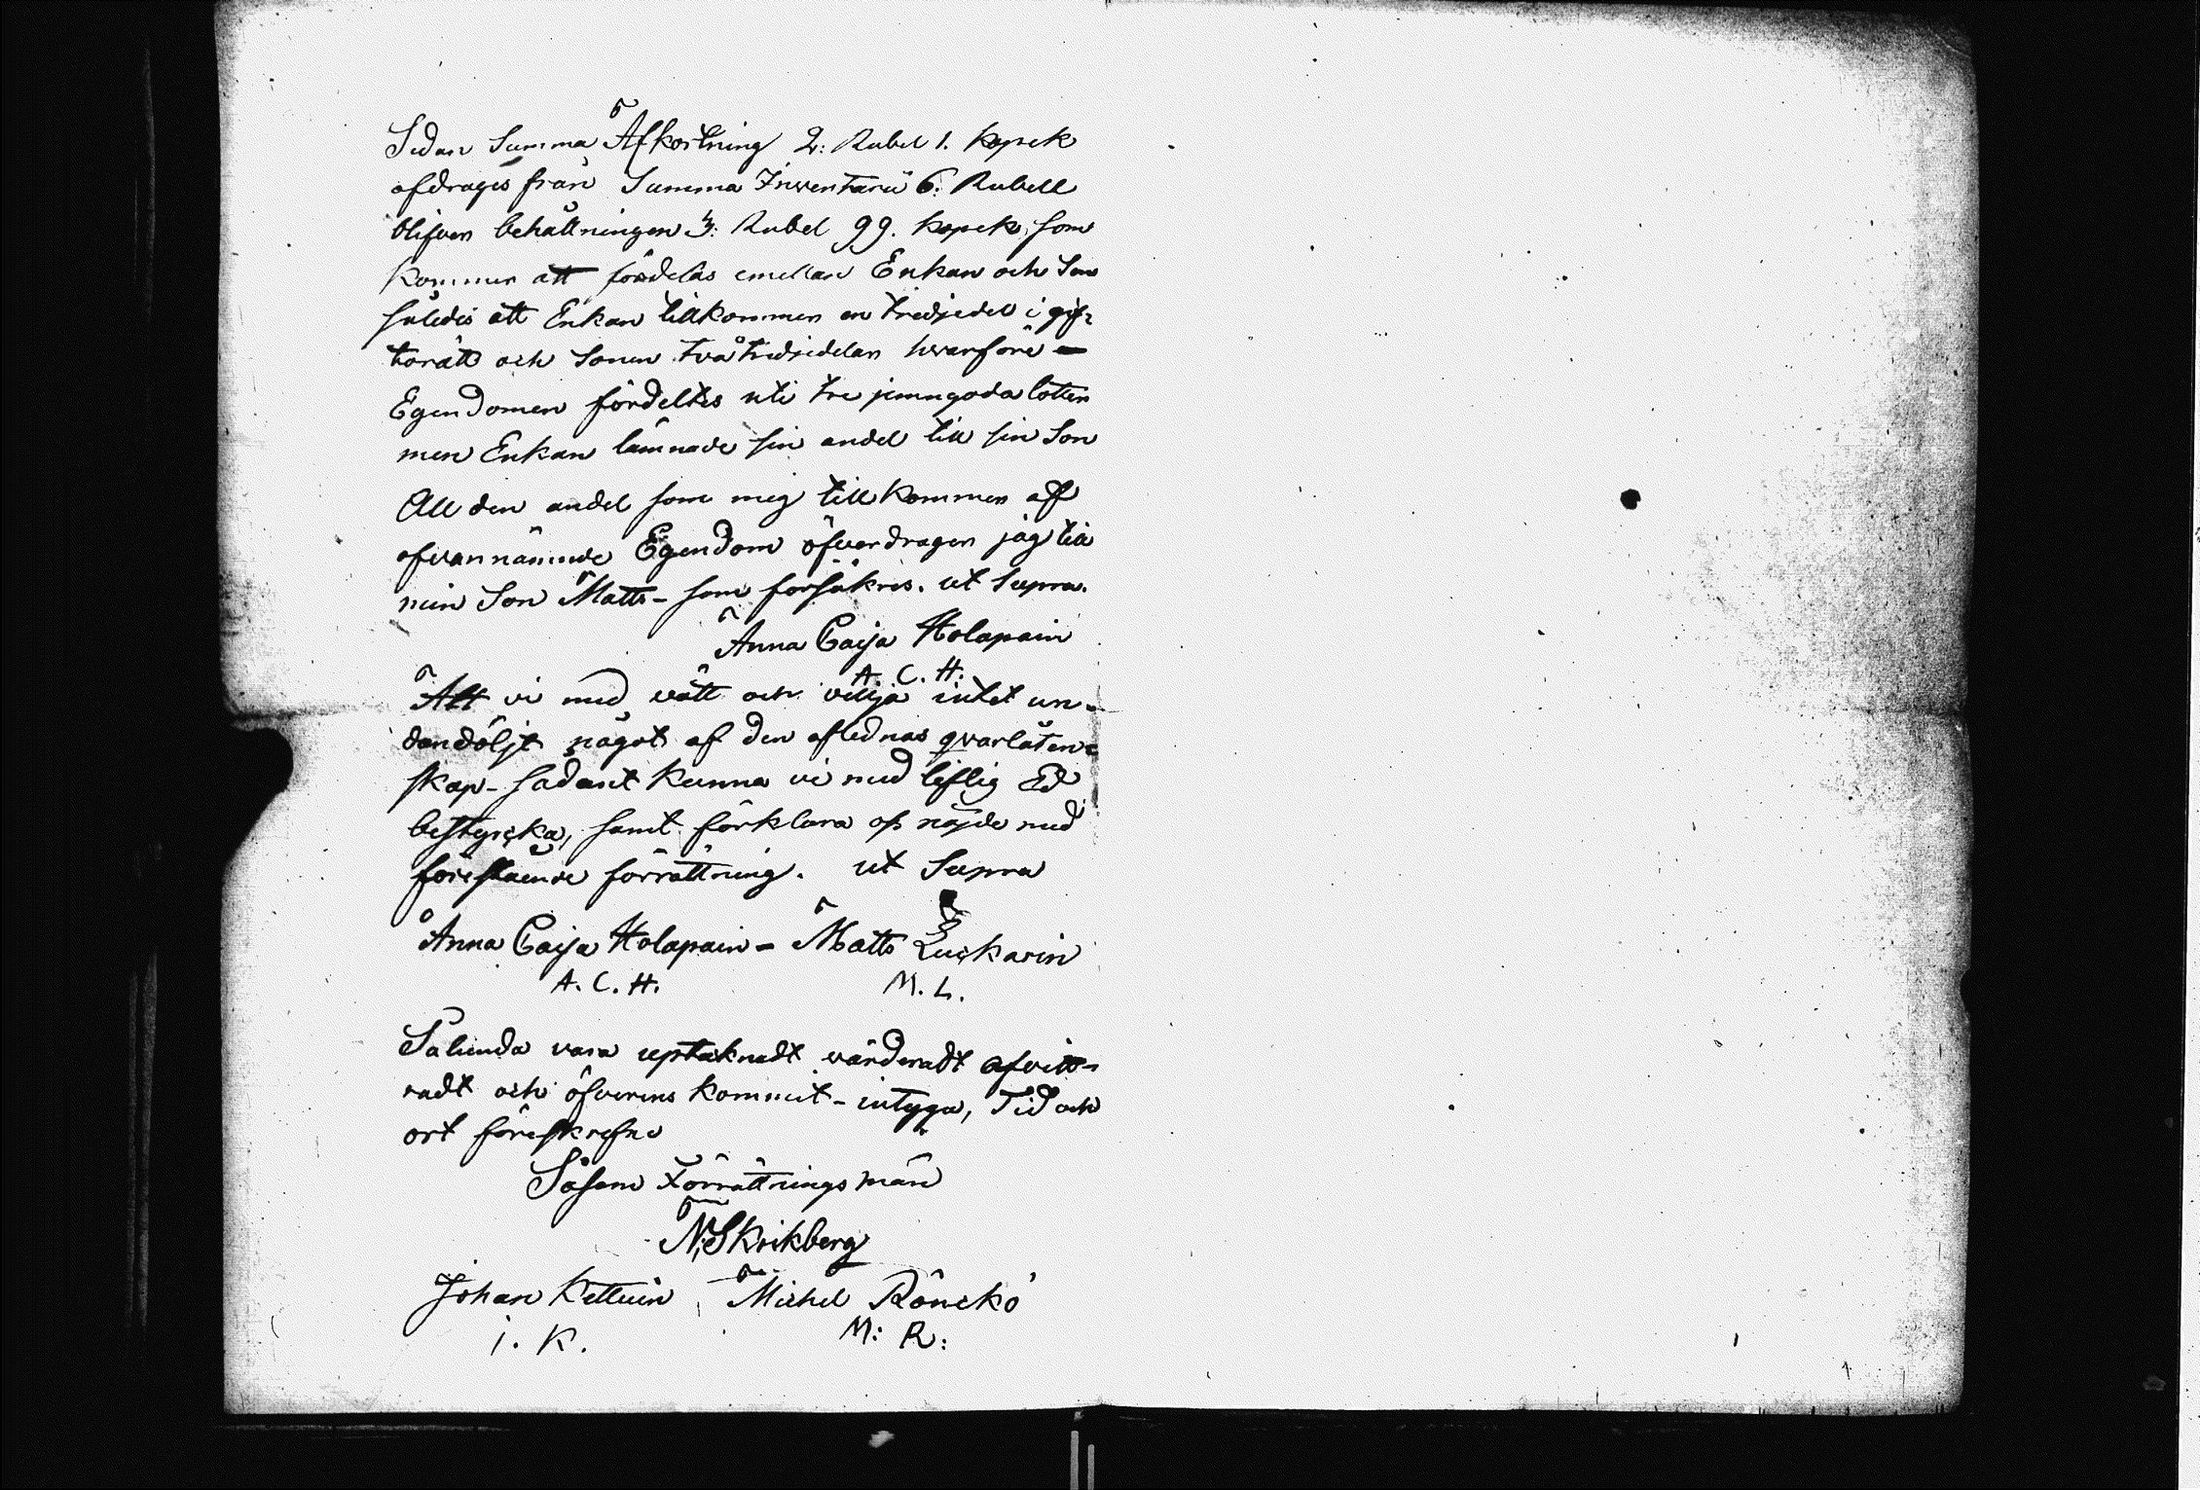 Sedan Summa Afkortning 2: Rubel 1. kopek
afdrages från Summa Inventarii 6: Rubell
blifver behållningen 3: Rubel 99. kopek, som
kommer att fördelas emellan Enkan och Son
således att Enkan tillkommer en tredjedel i gif-
torätt och Sonen två tredjedelar hvarföre —
Egendomen fördeltes uti tre jemngoda lotter
men Enkan lämnade sin andel till sin Son
All den andel som mig tillkommer aff
ofvannämnde Egendom öfverdrager jag till
min Son Matts – som försäkres. ut Supra.
Anna Caija Holapain
A. C. H.
Att vi med vett och vilja intet un-
dandöljt något af den aflednas qvarlåten-
skap – sådant kunna vi med liflig Ed
bestyrcka, samt förklara oss nöjde med
förestående förrättning. ut Supra
Anna Caija Holapain – Matts Luckarin
A. C. H. M. L.
Sålunda vara uptaknadt värderadt afvitt-
radt och öfverens kommit – intyga, Tid och
ort föreskrefne
Såsom Förrättnings män
N. Skrikberg
Johan Kettuin, Michel Rönckö
i. K. M: R: